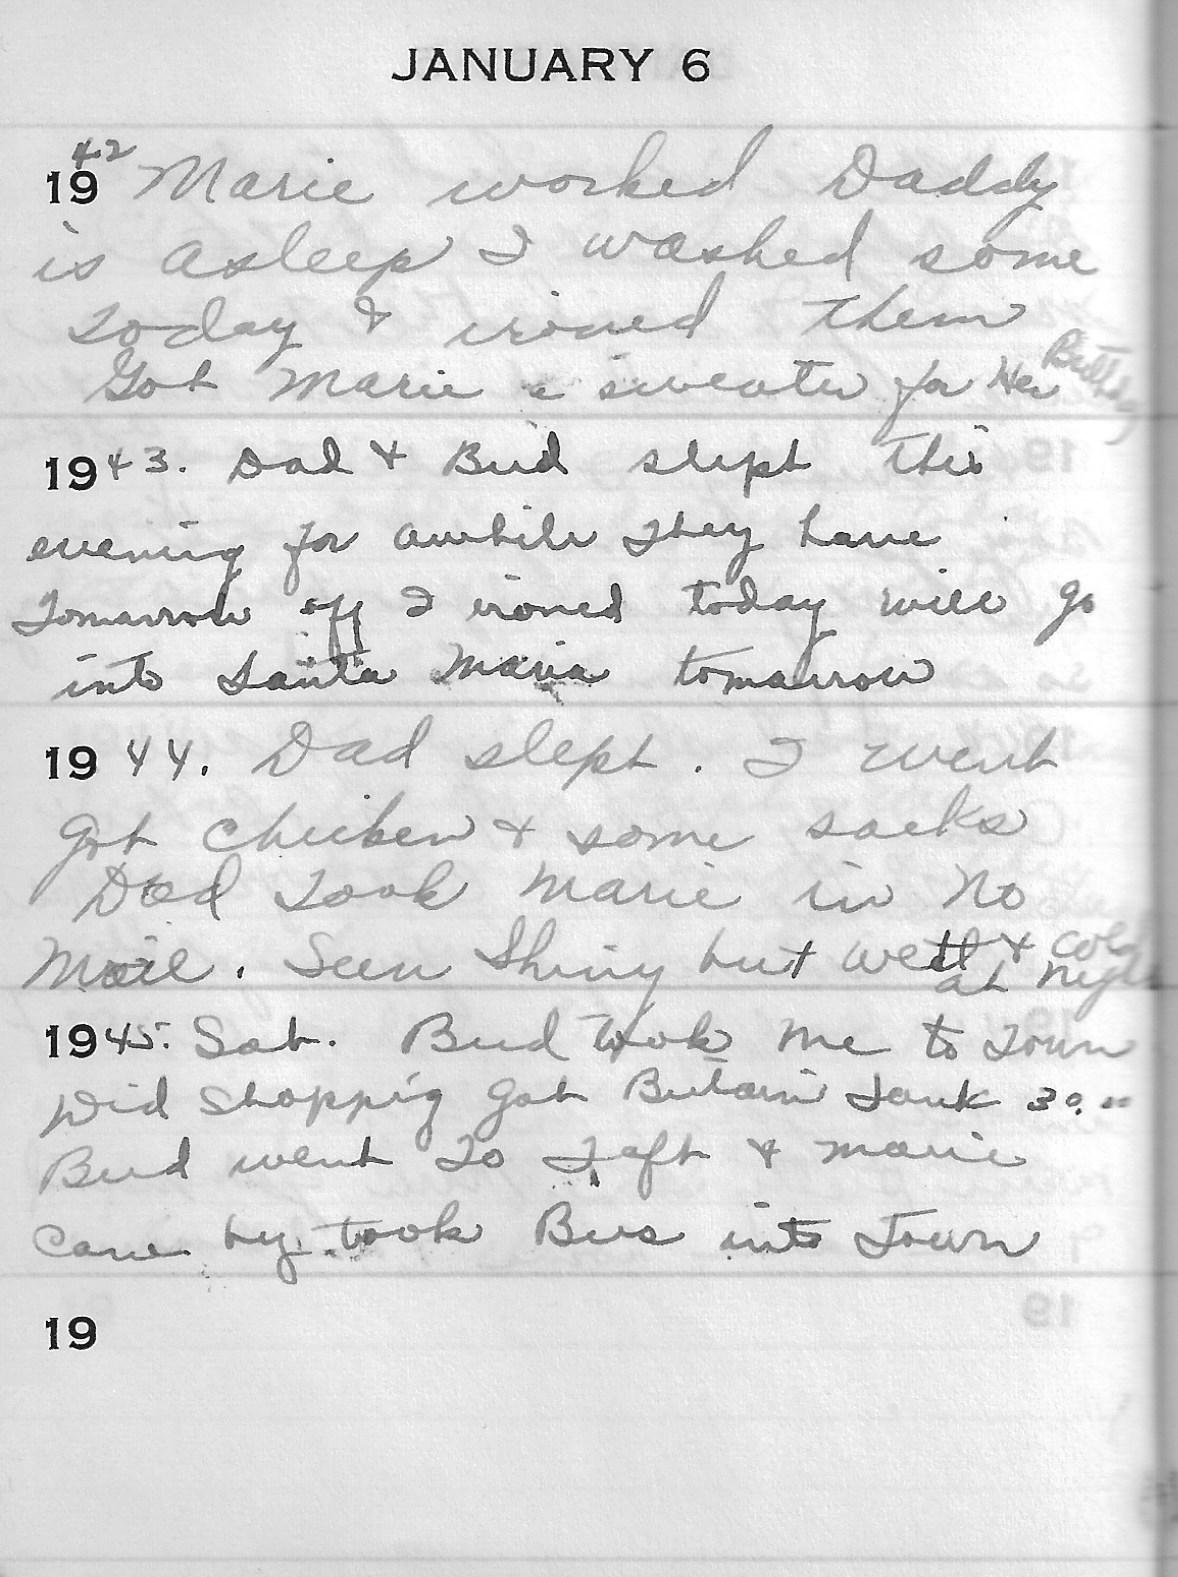 JANUARY 6
1942 Marie worked Daddy
is asleep I washed some
today & ironed them
Got Marie a sweater for Her Birthday
1943. Dad & Bud slept this
evening for awhile They have
Tomarrow off I ironed today will go
into Santa Maria tomarrow
1944. Dad slept. I went
got chicken & some sacks
Dad took Marie in No
Mail. Seen Shiny but wett & cold
at night
1945. Sat. Bud took me to Town
Did Shopping got Butain Tank 30.00
Bud went To Taft & Marie
came by took Bus into Town
19